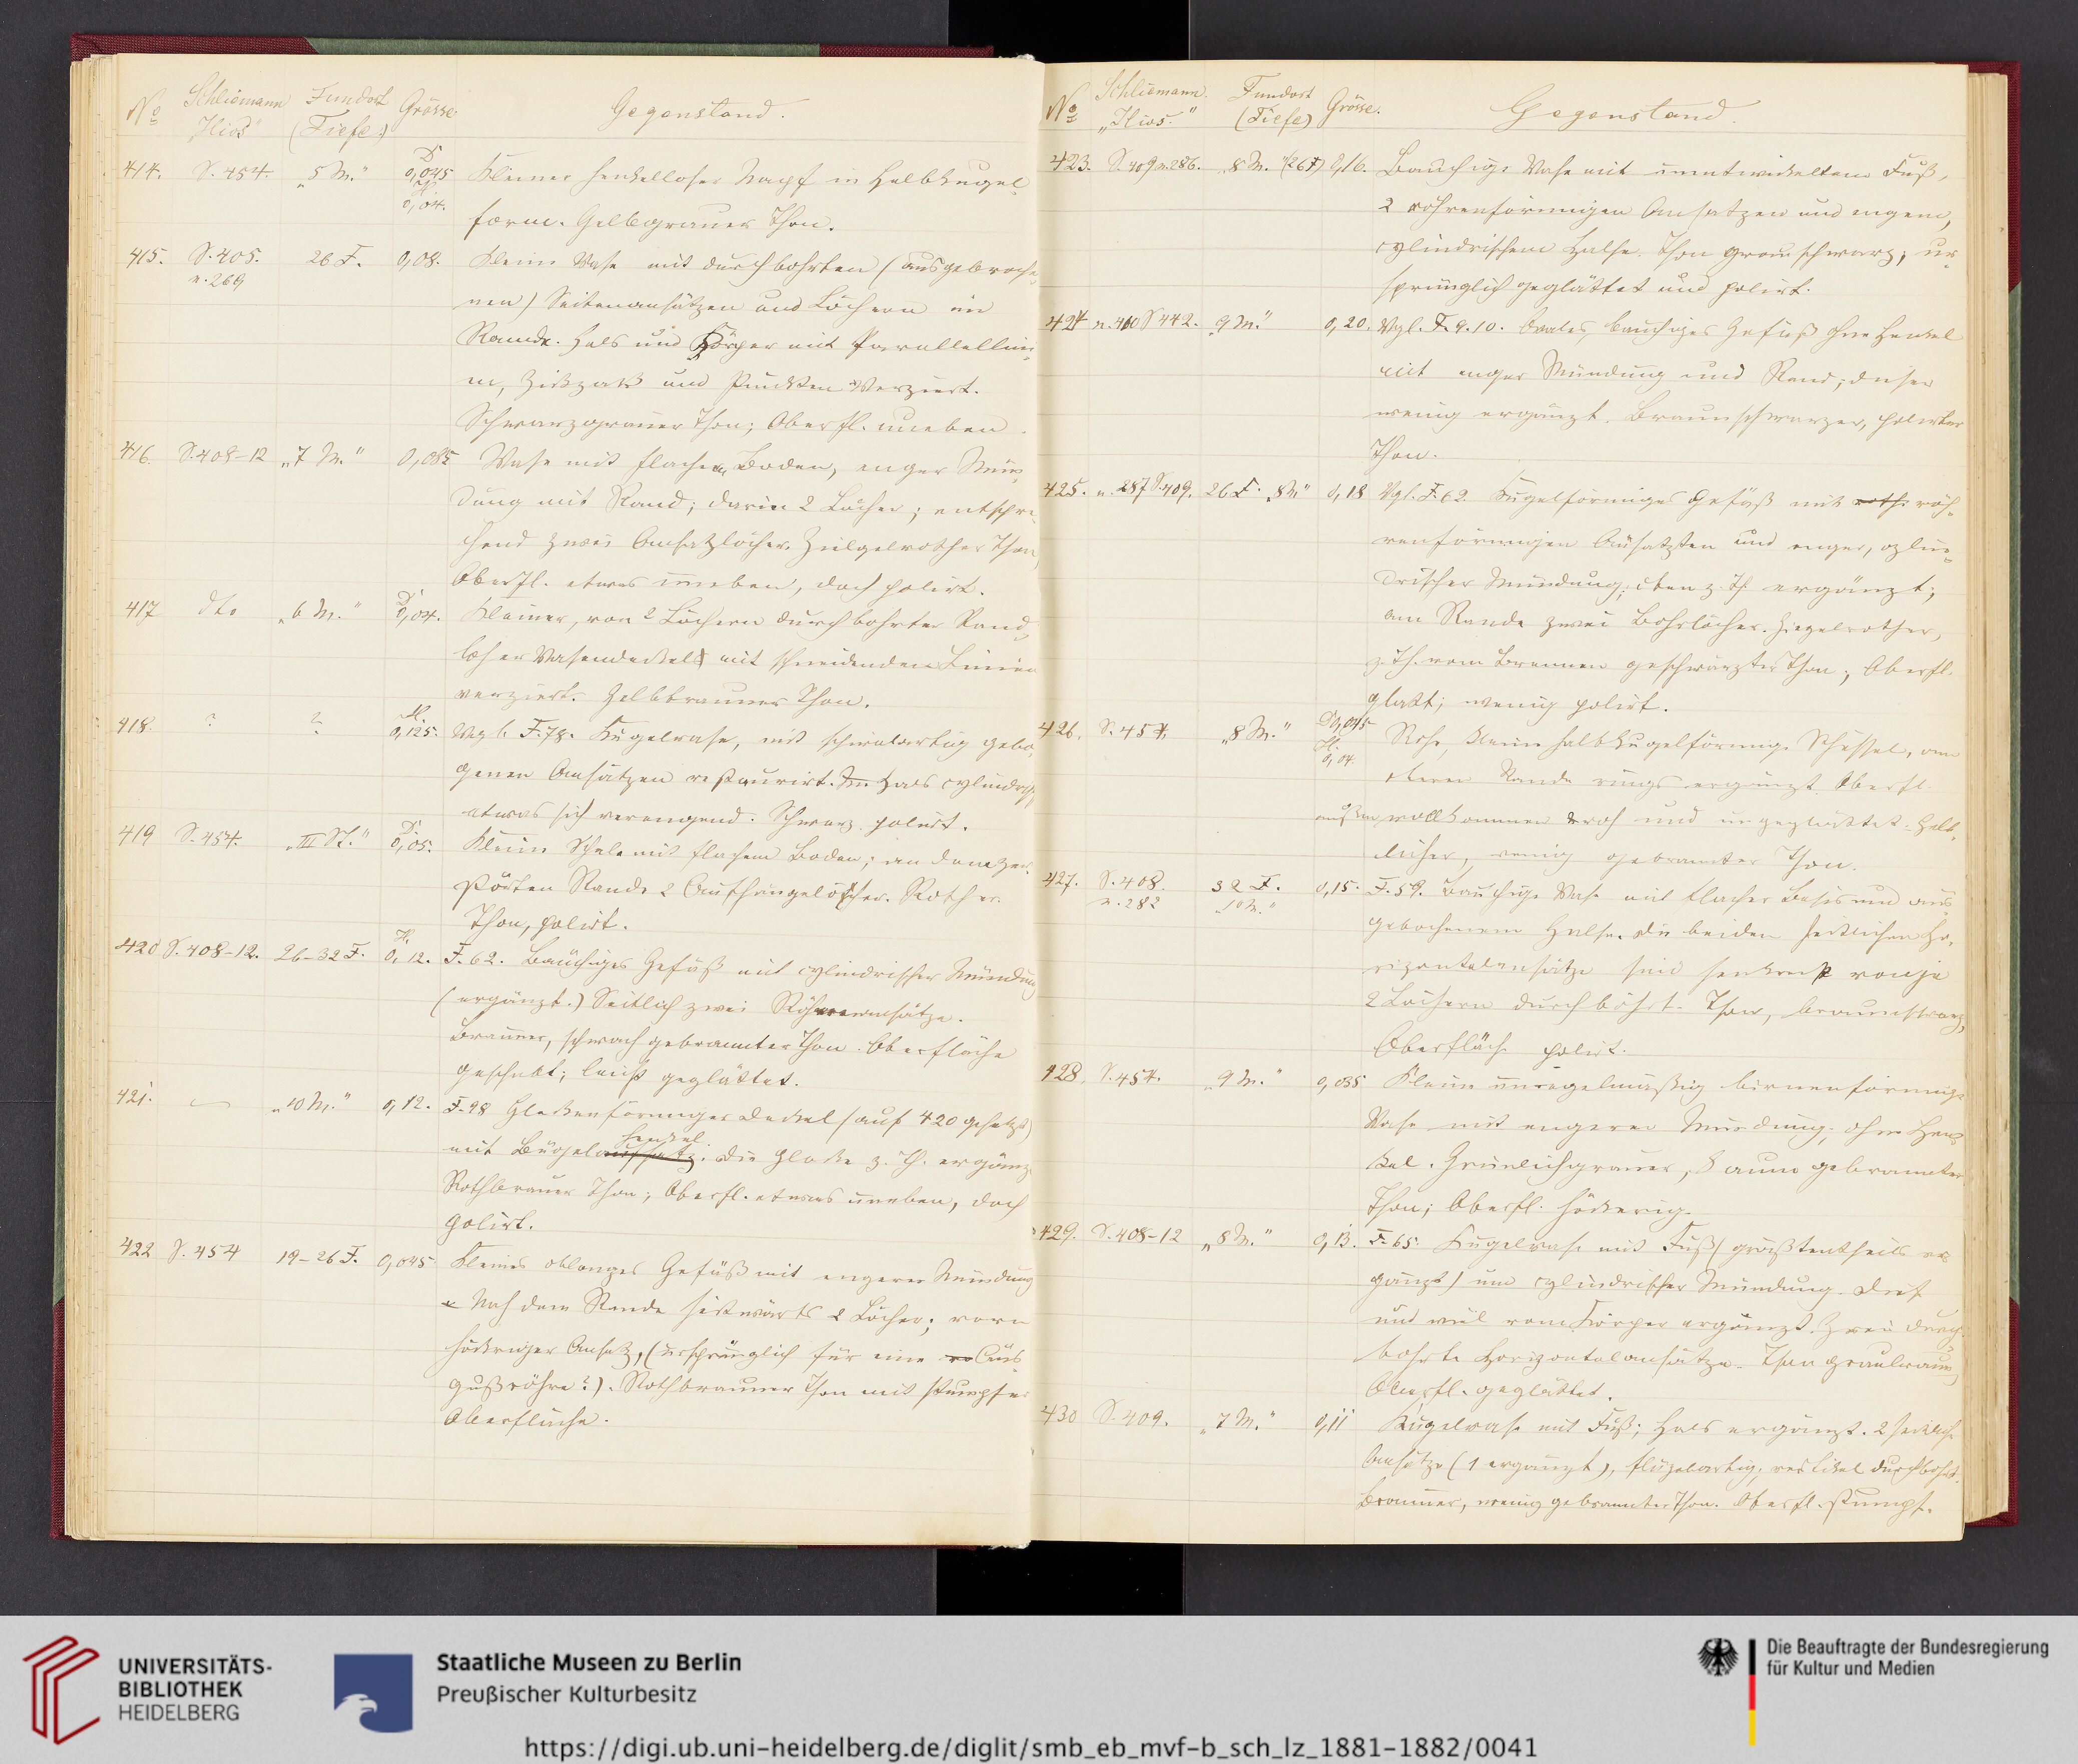 No Schliemann Fundort Grösse. Gegenstand.
„Ilios" (Tiefe.)
414. S. 454. „5 M." D. 0,045 H. 0,04. Kleiner henkelloser Napf in Halbkugel-
form. Gelbgrauer Thon.
415. S. 405. n. 269 26 F. 0,08. Kleine Vase mit durchbohrten (ausgebroche-
nen) Seitenansätzen und Löchern im
Rande. Hals und Körper mit Parallellini-
en, Zickzack und Punkten verziert.
Schwarzgrauer Thon; Oberfl. uneben.
416. S. 408-12 „7 M." 0,085 Vase mit flachem Boden, enger Mün-
dung mit Rand; darin 2 Löcher; entspre-
chend zwei Ansatzlöcher. Ziegelrother Thon,
Oberfl. etwas uneben, doch polirt.
417 dto „6 M." D. 0,04. Kleiner, von 2 Löchern durchbohrter Rand-
loser Vasendeckel mit schneidenden Linien
verziert. Gelbbrauner Thon.
418. ? ? H. 0,125. Vgl. F. 78. Kugelvase, mit gebo-
genen Ansätzen restaurirt. Hals cylindrisch,
etwas sich verengend. Schwarz polirt.
419 S. 454. „III St." D. 0,05. Kleine Schale mit flachem Boden; an dem zer-
störten Rande 2 Aufhängelöcher. Rother
Thon, polirt.
420 S. 408-12. 26-32 F. H. 0,12. F. 62. Bauchiges Gefäß mit cylindrischer Mündung
(ergänzt.) Seitlich zwei Röhrenansätze.
Brauner, schwach gebrannter Thon. Oberfläche
geglättet.
421. — „10 M." 0,12. F. 98 Glockenförmiger Deckel (auf 420 gesetzt)
mit Bügelhenkel. Die Glocke z. Th. ergänzt.
Rothbrauner Thon; Oberfl. etwas uneben, doch
polirt.
422 S. 454 19-26 F. 0,045 Kleines oblonges Gefäß mit engerer Mündung
Nach dem Rande seitwärts 2 Löcher; vorn
höckriger Ansatz, (ursprünglich für eine Aus-
gußröhre?). Rothbrauner Thon mit stumpfer
Oberfläche.
No Schliemann. Fundort Grösse. Gegenstand.
„Ilios." (Tiefe)
423. S. 409 n. 286. „8 M." (26 F) 0,16. Bauchige Vase mit unentwickeltem Fuß,
2 röhrenförmigen Ansätzen und engem,
cylindrischem Halse. Thon grauschwarz, ur-
sprünglich geglättet und polirt.
424 n. 400 S 442. „9 M." 0,20. Vgl. F. 9. 10. Ovales, bauchiges Gefäß ohne Henkel
mit enger Mündung und Rand; dieser
wenig ergänzt. Braunschwarzer, polirter
Thon.
425. n. 287 S. 409. 26 F. „8 M" 0,18 Vgl. F. 62. Kugelförmiges Gefäß mit röh-
renförmigen Ansätzen und enger, cylin-
drischer Mündung; oben z. Th. ergänzt;
am Rande zwei Bohrlöcher. Ziegelrother,
z. Th. vom Brennen geschwärzter Thon; Oberfl.
glatt; wenig polirt.
426. S. 454. „8 M." D 0,045 H. 0,04. Rohe, kleine halbkugelförmige Schüssel, am
oberen Rande rings ergänzt. Oberfl.
außen vollkommen roh und ungeglättet. Gelb-
licher, wenig gebrannter Thon.
427. S. 408. n. 282 32 F. „10 M." 0,15. F. 59. Bauchige Vase mit flacher Basis und aus-
gebrochenem Halse. Die beiden seitlichen Ho-
rizontalansätze sind senkrecht von je
2 Löchern durchbohrt. Thon, braunschwarz,
Oberfläche polirt.
428. S. 454. „9 M." 0,035 Kleine unregelmäßig birnenförmige
Vase mit engerer Mündung, ohne Hen-
kel. Grünlichgrauer, kaum gebrannter
Thon; Oberfl. höckerig.
429. S. 408-12 „8 M." 0,13. F. 65. Kugelvase mit Fuß (größtentheils er-
gänzt) und cylindrischer Mündung. Diese
und viel vom Körper ergänzt. Zwei durch-
bohrte Horizontalansätze. Thon graubraun,
Oberfl. geglättet.
430 S. 409. „7 M." 0,11 Kugelvase mit Fuß; Hals ergänzt. 2 seitliche
Ansätze (1 ergänzt), flügelartig, vertikal durchbohrt.
Brauner, wenig gebrannter Thon. Oberfl. stumpf.
UNIVERSITÄTS-
BIBLIOTHEK
HEIDELBERG
Staatliche Museen zu Berlin
Preußischer Kulturbesitz
Die Beauftragte der Bundesregierung
für Kultur und Medien
https://digi.ub.uni-heidelberg.de/diglit/smb_eb_mvf-b_sch_lz_1881-1882/0041